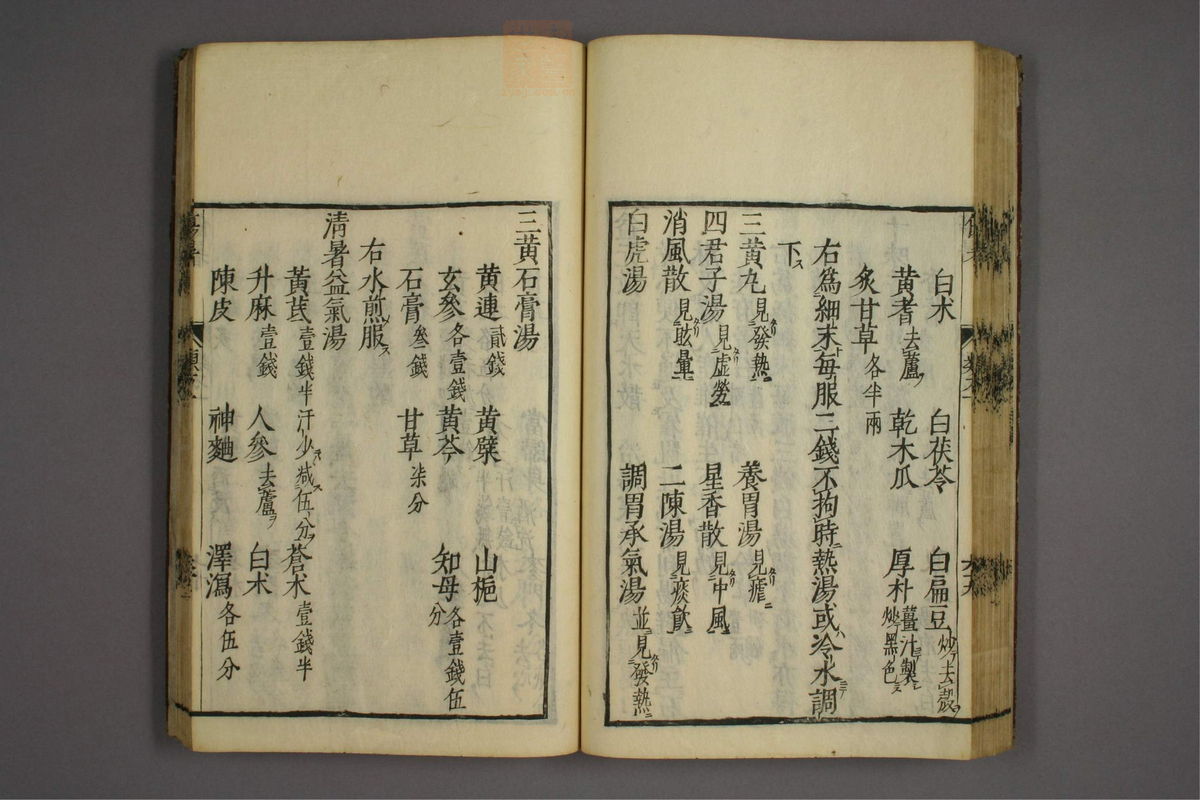 白朮 白茯苓 白扁豆炒去殼
黄耆去蘆ヲ 乾木瓜 厚朴薑汁製炒黑色
炙甘草各半兩
右為細末毎服二錢不拘時熱湯或冷水調
下ス
三黄丸見發熱 養胃湯見瘧
四君子湯見虚勞 星香散見中風
消風散見眩暈 二陳湯見痰飲
白虎湯 調胃承氣湯並見發熱
三黄石膏湯
黄連貳錢 黄蘗 山梔
玄參各壹錢 黄芩 知母各壹錢伍分
石膏叁錢 甘草柒分
右水煎服ス
清暑益氣湯
黄芪壹錢半汗少减伍分 蒼朮壹錢半
升麻壹錢 人參去蘆ヲ 白朮
陳皮 神麯 澤瀉各伍分